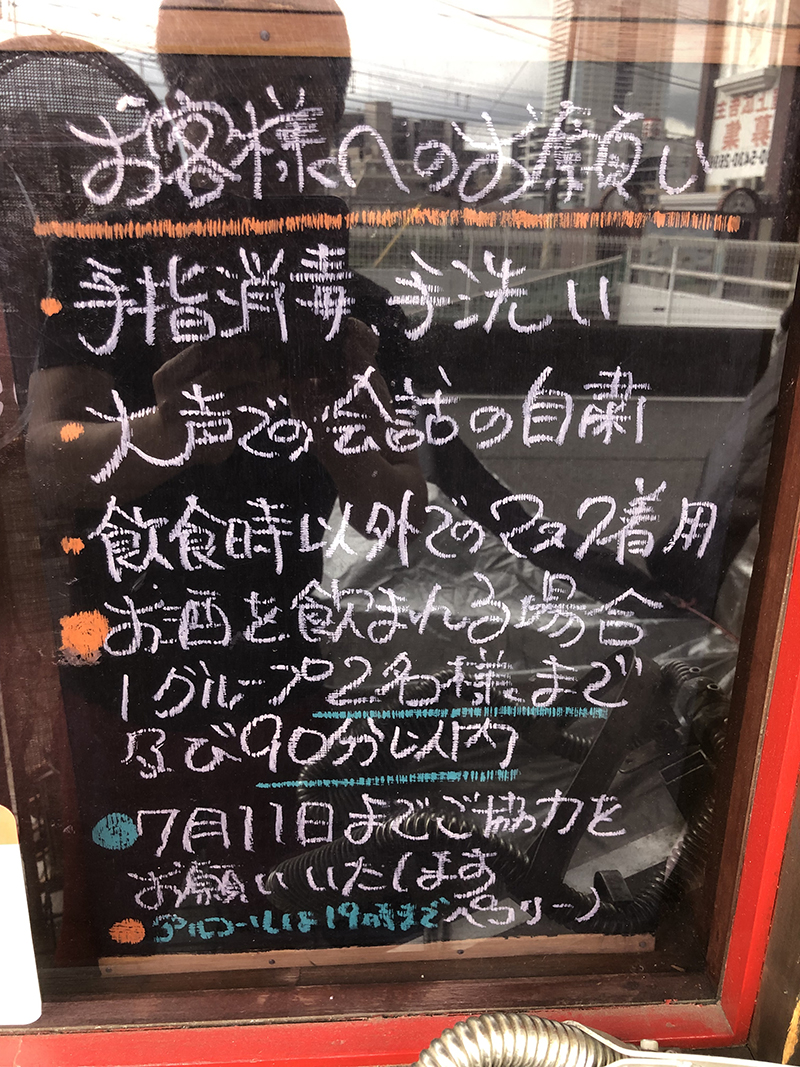 お客様へのお願い
・手指消毒、手洗い
・大声での会話の自粛
・飲食時以外でのマスク着用
・お酒を飲まれる場合
1グループ2名様まで
及び90分以内
・7月11日までご協力を
お願いいたします
・アルコールは19時まで ペコリーノ